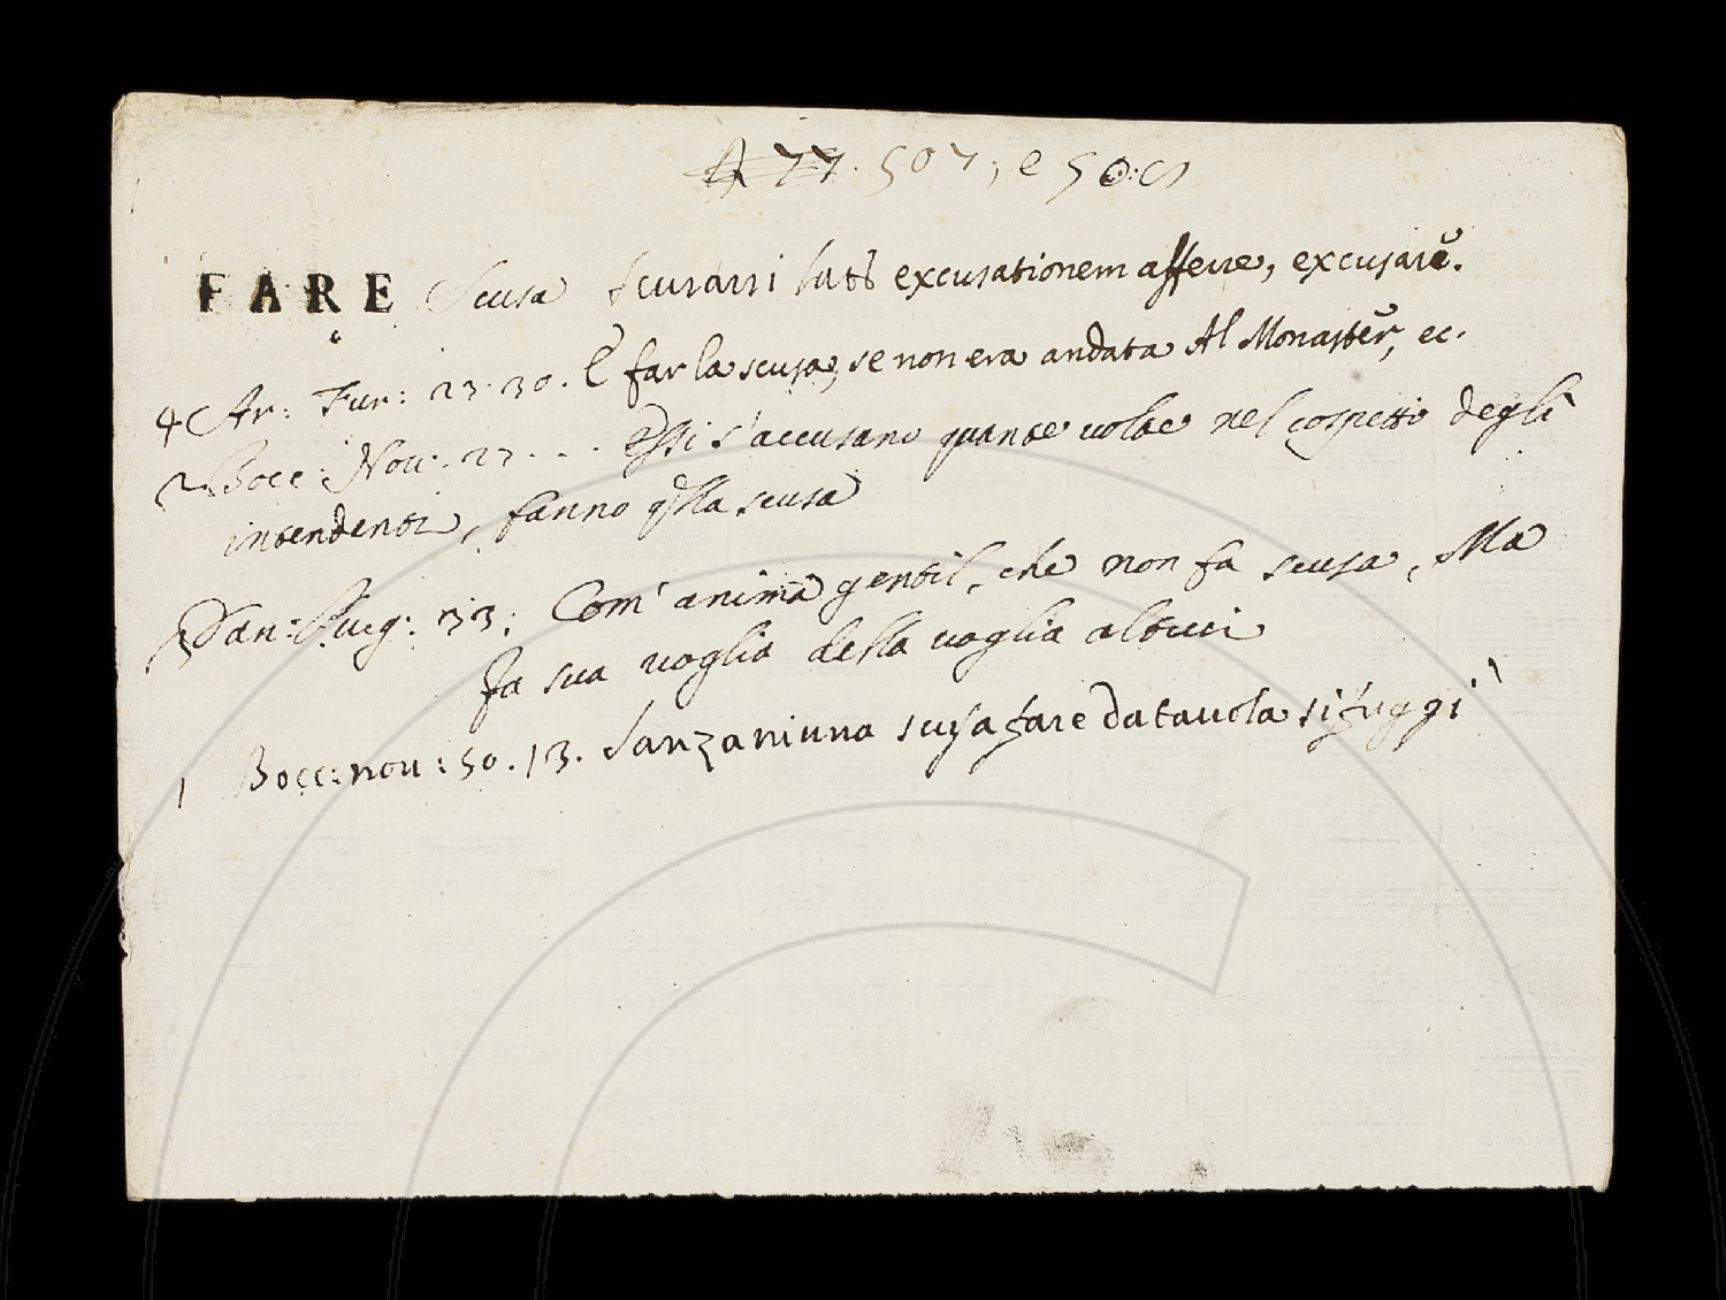 77. 507, e 50
FARE Scusa Scusarsi lat: excusationem afferre, excusare.
4 Ar: Fur: 23. 30. E far la scusa, se non era andata Al Monaster, ec.
2 Bocc: Nov. 27. . . . essi s'accusano quante volte nel cospetto degli
intendenti, fanno qlla scusa
3 Dan: Purg: 33: Com' anima gentil, che non fa scusa, Ma
fa sua voglia della voglia altrui
1 Bocc: nov: 50. 13. Sanza niuna scusa fare da tavola si fuggi